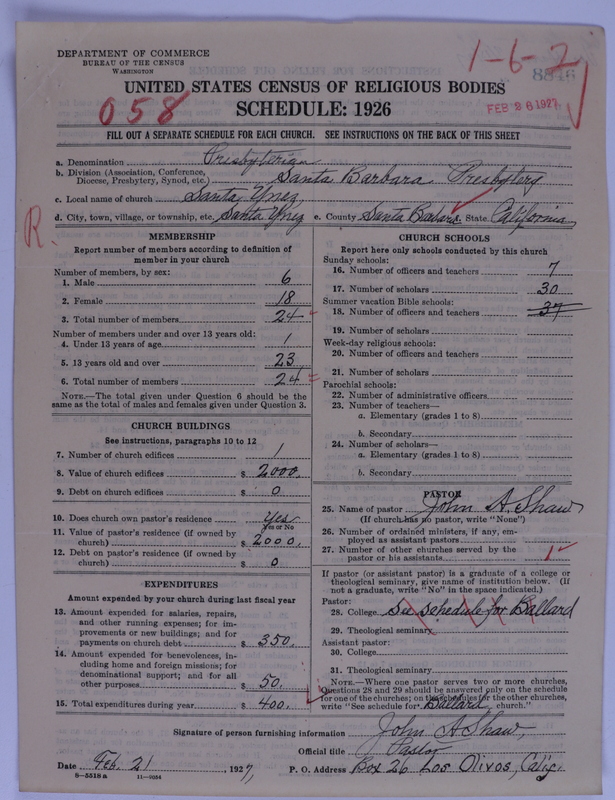 DEPARTMENT OF COMMERCE
BUREAU OF THE CENSUS
WASHINGTON
1-6-2
8816
UNITED STATES CENSUS OF RELIGIOUS BODIES
058
SCHEDULE: 1926
FEB 26 1927
FILL OUT A SEPARATE SCHEDULE FOR EACH CHURCH. SEE INSTRUCTIONS ON THE BACK OF THIS SHEET
a. Denomination Presbyterian
b. Division (Association, Conference, Diocese, Presbytery, Synod, etc.) Santa Barbara Presbytery
c. Local name of church Santa Ynez
d. City, town, village, or township, etc. Santa Ynez e. County Santa Barbara State California
R.
MEMBERSHIP
Report number of members according to definition of
member in your church
Number of members, by sex:
1. Male 6
2. Female 18
3. Total number of members 24
Number of members under and over 13 years old:
4. Under 13 years of age 1
5. 13 years old and over 23
6. Total number of members 24
NOTE.—The total given under Question 6 should be
same as the total of males and females given under Question 3.
CHURCH BUILDINGS
See instructions, paragraphs 10 to 12
7. Number of church edifices 1
8. Value of church edifices $ 2000.
9. Debt on church edifices $ 0
10. Does church own pastor's residence Yes
Yes or No
11. Value of pastor's residence (if owned by
church) $ 2000.
12. Debt on pastor's residence (if owned by
church) $ 0
EXPENDITURES
Amount expended by your church during last fiscal year
13. Amount expended for salaries, repairs,
and other running expenses; for im-
provements or new buildings; and for
payments on church debt $ 350.
14. Amount expended for benevolences, in-
cluding home and foreign missions; for
denominational support; and for all
other purposes $ 50.
15. Total expenditures during year $ 400.
CHURCH SCHOOLS
Report here only schools conducted by this church
Sunday schools:
16. Number of officers and teachers 7
17. Number of scholars 30
Summer vacation Bible schools:
18. Number of officers and teachers 37
19. Number of scholars
Week-day religious schools:
20. Number of officers and teachers
21. Number of scholars
Parochial schools:
22. Number of administrative officers
23. Number of teachers—
a. Elementary (grades 1 to 8)
b. Secondary
24. Number of scholars—
a. Elementary (grades 1 to 8)
b. Secondary
PASTOR
25. Name of pastor John A. Shaw
(If church has no pastor, write "None")
26. Number of ordained ministers, if any, em-
ployed as assistant pastors
27. Number of other churches served by the
pastor or his assistants 1
If pastor (or assistant pastor) is a graduate of a college or
theological seminary, give name of institution below. (If
not a graduate, write "No" in the space indicated.)
Pastor:
28. College See schedule for Ballard
29. Theological seminary
Assistant pastor:
30. College
31. Theological seminary
NOTE.—Where one pastor serves two or more churches,
Questions 28 and 29 should be answered only on the schedule
for one of the churches; on the schedules for the other churches,
write "See schedule for Ballard church."
Signature of person furnishing information John A Shaw,
Official title Pastor
Date Feb. 21, 1927, P. O. Address Box 26 Los Olivos, Calif.
8—5518a 11—9054